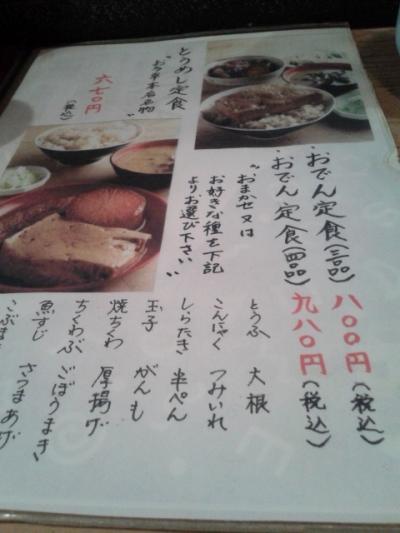 おでん定食(三品) 八〇〇円(税込)
おでん定食(四品) 九八〇円(税込)
"おまかせ又は
お好きな種を下記
よりお選び下さい"
とうふ 大根
こんにゃく つみいれ
しらたき 半ぺん
玉子 がんも
焼ちくわ 厚揚げ
ちくわぶ ごぼうまき
魚すじ さつまあげ
こぶま
とりめし定食
"お多幸本店名物"
六七〇円
(税込)